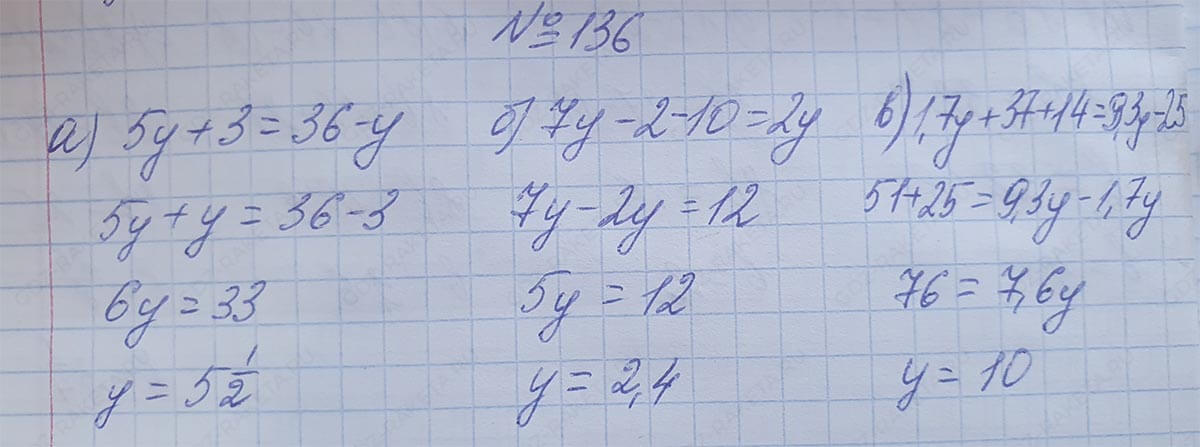 №136
а) 5y+3=36-y
5y+y=36-3
6y=33
y=5 1/2
б) 7y-2-10=2y
7y-2y=12
5y=12
y=2,4
в) 1,7y+37+14=9,3y-25
51+25=9,3y-1,7y
76=7,6y
y=10